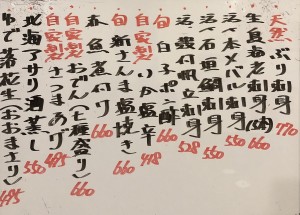 天然 ぶり刺身 770
生真海老刺身(5本) 660
活〆本メバル刺身 550
活〆石垣鯛刺身 550
活 殻付帆立刺身 528
旬 白子ポン酢 660
自家製 いか塩辛 418
旬 新さんま塩焼き 660
春魚煮付け 660
自家製 おでん(七種盛り) 660
自家製 さつまあげ 495
北海アサリ酒蒸し 550
ゆで落花生(おおまさり) 495